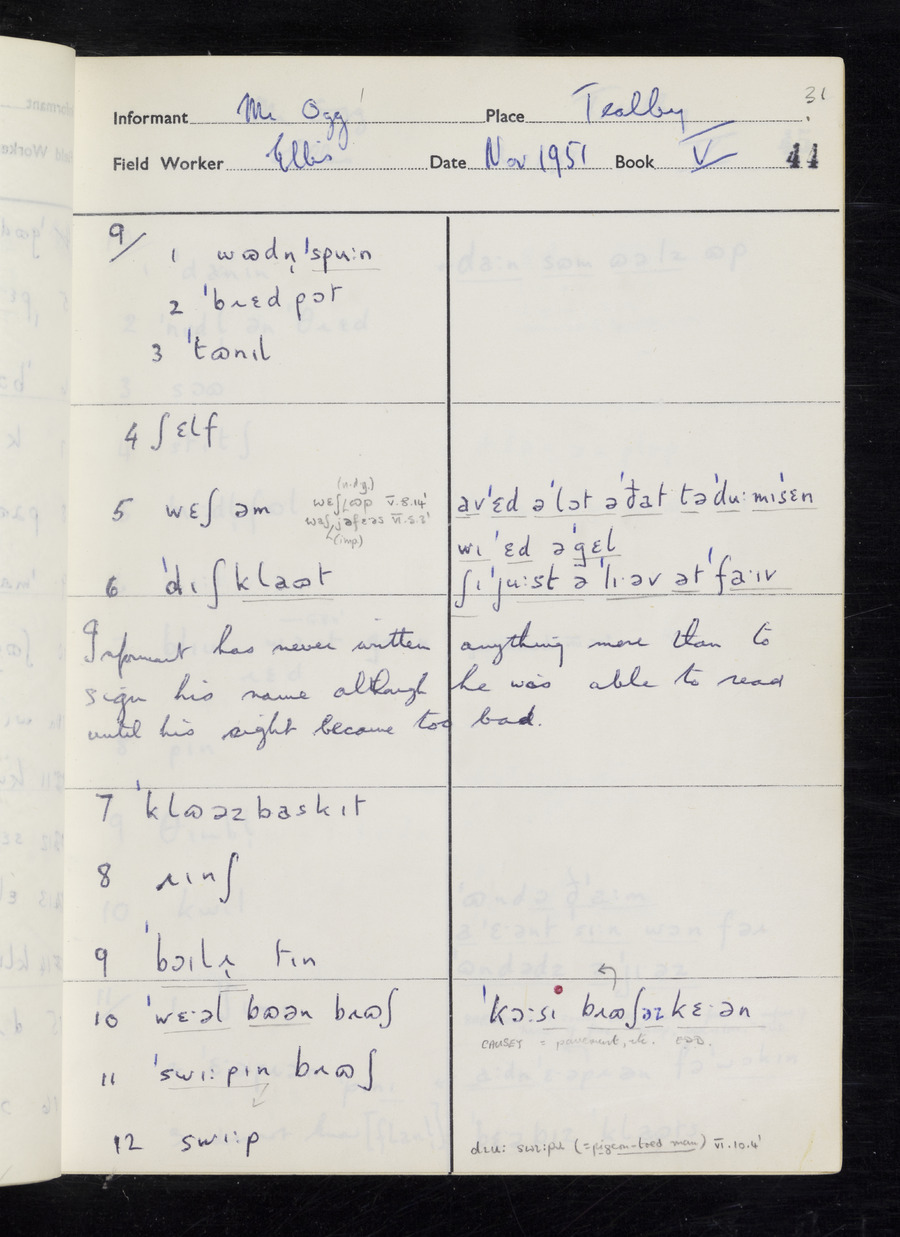 31
Informant Mr Ogg Place Tealby
Field Worker Ellis Date Nov 1951 Book V 44
9/
1 wʊdn̩ ˈspuːn
2 ˈbɹɛd pɔt
3 ˈtʊnɪl
4 ʃɛlf
5 wɛʃ əm
(n.d.g.)
wɛʃ ʊp V.8.14
wɛʃ jəfɛəs VI.5.3
(imp)
avˈɛd əˈlɔt əˈðat təˈduː mɪsɛn
wɪ ˈɛd əˈgɛl
6 ˈdɪʃklaʊt
ʃɪ ˈjuːst əˈlɪəv ətˈfaːɪv
Informant has never written anything more than to
sign his name although he was able to read
until his sight became too bad.
7 ˈklʊəzbaskɪt
8 ɹɪnʃ
9 ˈbɔɪlɹ̩ tɪn
10 ˈwɛːəl bʊən bɹʊʃ
ˈkɔːsɪ bɹʊʃəz kɛːən
CAUSEY = pavement, etc. EDD.
11 ˈswɪːpɪn bɹʊʃ
12 swɪːp
(= pigeon-toed man) VI.10.4